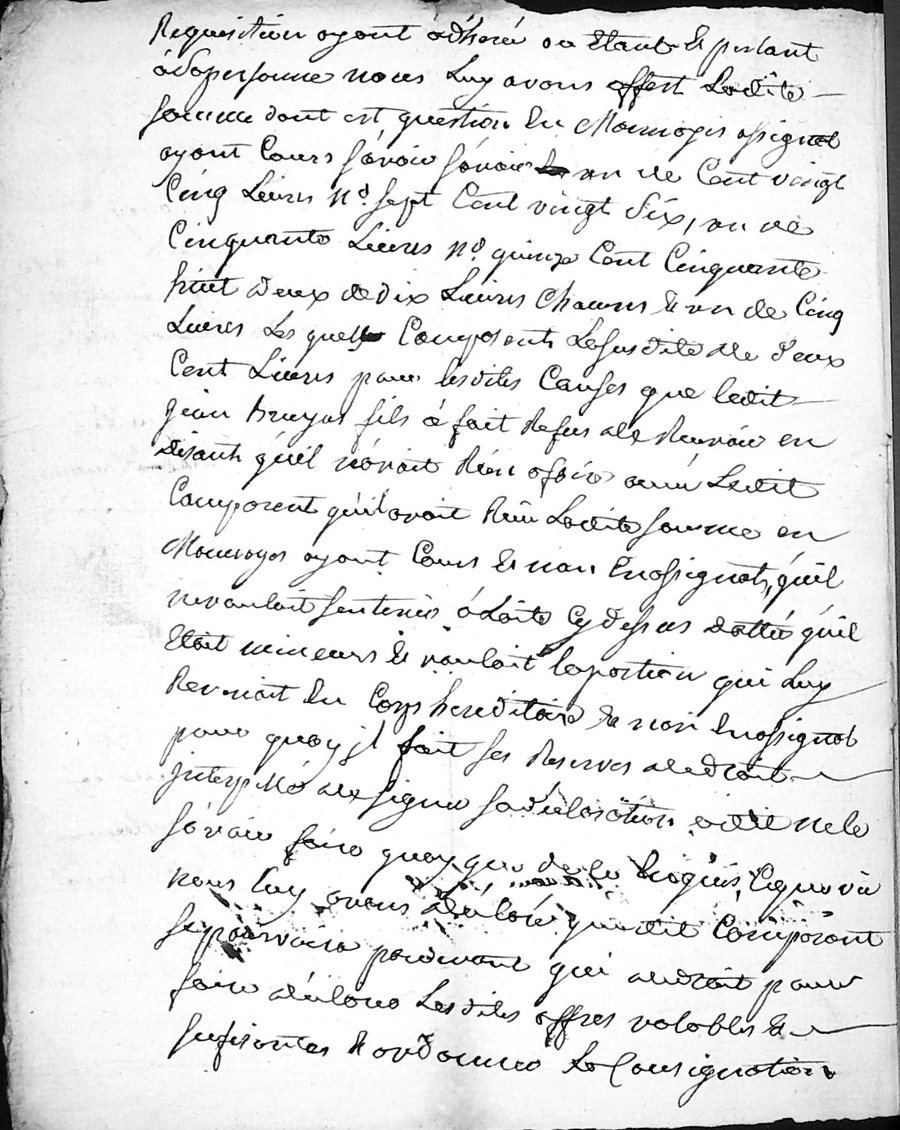 Requisition ayant adheré en Etant & parlant
à Sa personne nous luy avons offert Ladite
Somme dont est question En Monnoyes assignat
ayant Cours Savoir Savoir un de Cent vingt
Cinq Livres N.º Sept Cent vingt Six, un de
Cinquante Livres N.º quinze Cent Cinquante
huit deux de dix Livres Chacuns & un de Cinq
Livres Les quels Composent La Susdite de deux
Cent Livres pour lesdites Causes que ledit
Jean fils à fait Refus de Recevoir en
disant qu'il n'avoit Rien afaire avec Ledit
Comparent qu'il avoit Ladite Somme en
Monnoyes ayant Cours & non En assignats, qu'il
ne vouloit Sentenir à Laite Cy dessus datté qu'il
Etoit mineurs & vouloit la portion qui Luy
Revenoit du Corps hereditaire & non En assignat
pour quoy il fait Ses Reserves de droit
Interpellé de Signer Sa declaration a dit ne le
Savoir faire quoy que de le Requis, Ce que vû
nous luy avons déclaré que ledit Comparant
Se pourvoira pardevant qui de droit pour
faire déclarer Lesdites offres valables &
Sufisantes & ordonner La Consignation